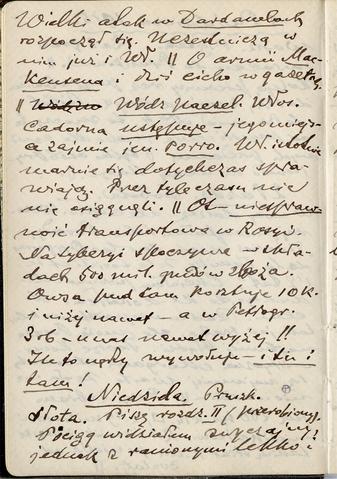 Wielki atak w Dardanelach
rozpoczął się. Uczestniczą w
nim już i Wł. || O armii Mac-
kensena i dziś cicho w gazetach.
|| Wódz naczel. Włos.
Cadorna ustępuje – jego miejs-
ce zajmie jen. Porro. Wł. istotnie
marnie się dotychczas spra-
wiają. Przez tyle czasu nic
nie osiągnęli. || Ot – niespraw-
ność transportowa w Rosyi.
Na Syberyi spoczywa w skła-
dach 500 mil. pudów zboża.
Owsa pud tam kosztuje 10 K.
i niżej nawet – a w Petrogr.
3 rb – u nas nawet wyżej !!
I to nędzę wywołuje – i tu i
tam!
Niedziela. Pruszk.
Słota. Piszę rozdz. II (przerobiony).
Pociąg widziałam
jednak z rannymi lekko i